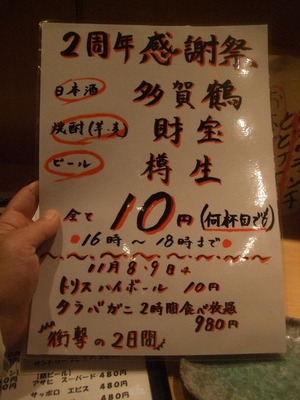 2周年感謝祭
日本酒 多賀鶴
焼酎(芋・麦) 財宝
ビール 樽生
全て10円(何杯目でも)
16時～18時まで
11月8・9日
トリスハイボール 10円
タラバガニ 2時間食べ放題
980円
衝撃の2日間
480円
アサヒ スーパード 480円
サッポロ エビス 480円